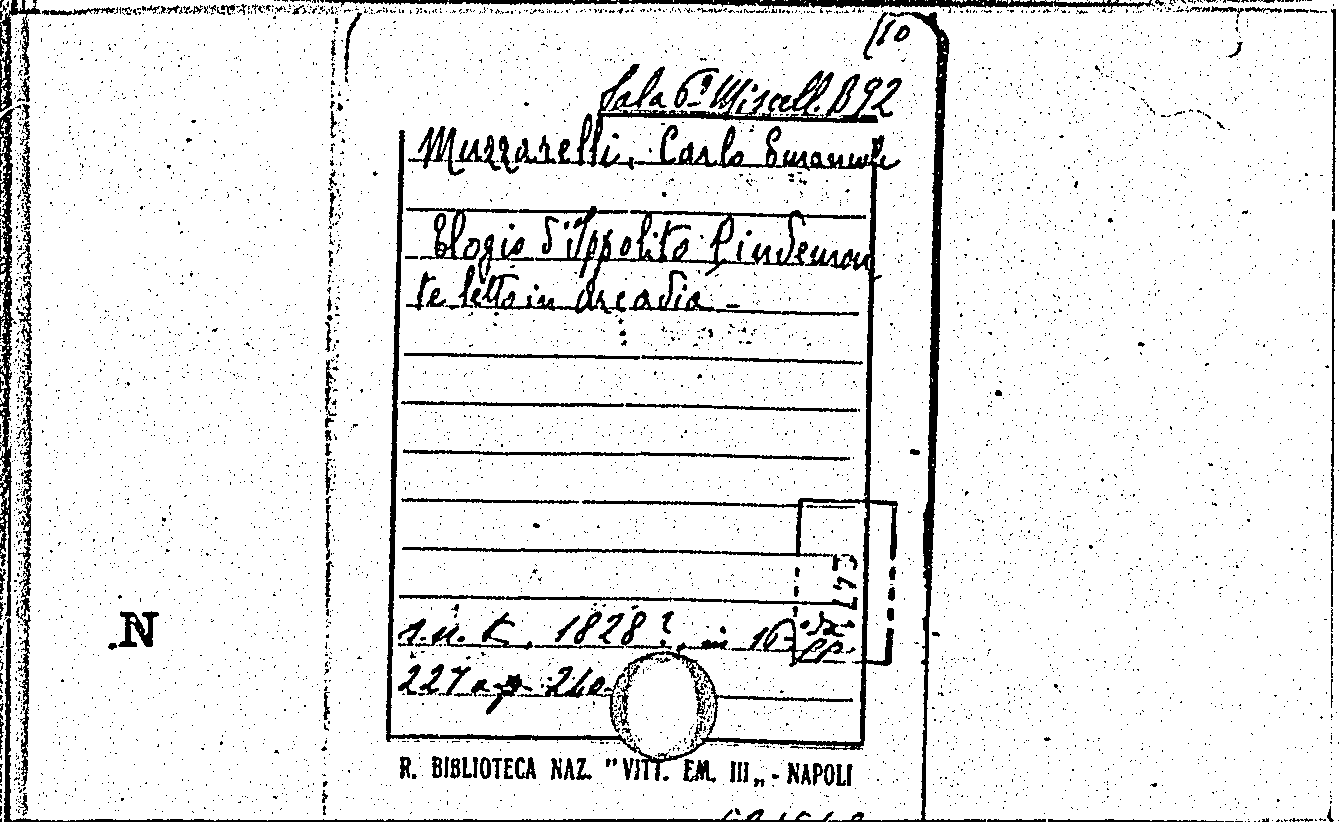 (10
Sala 6ª Miscell. B 92
Muzzarelli, Carlo Emanuele
Elogio d'Ippolito Pindemon
te letto in Arcadia -
s.n.t., 1828?, in 16°
227 a p. 240
N
R. BIBLIOTECA NAZ. "VITT. EM. III„ - NAPOLI